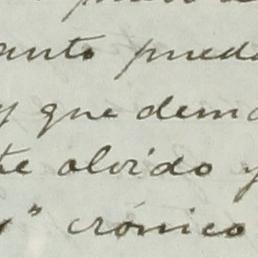 anto pueda
y que dem
te olvido y
" crónico